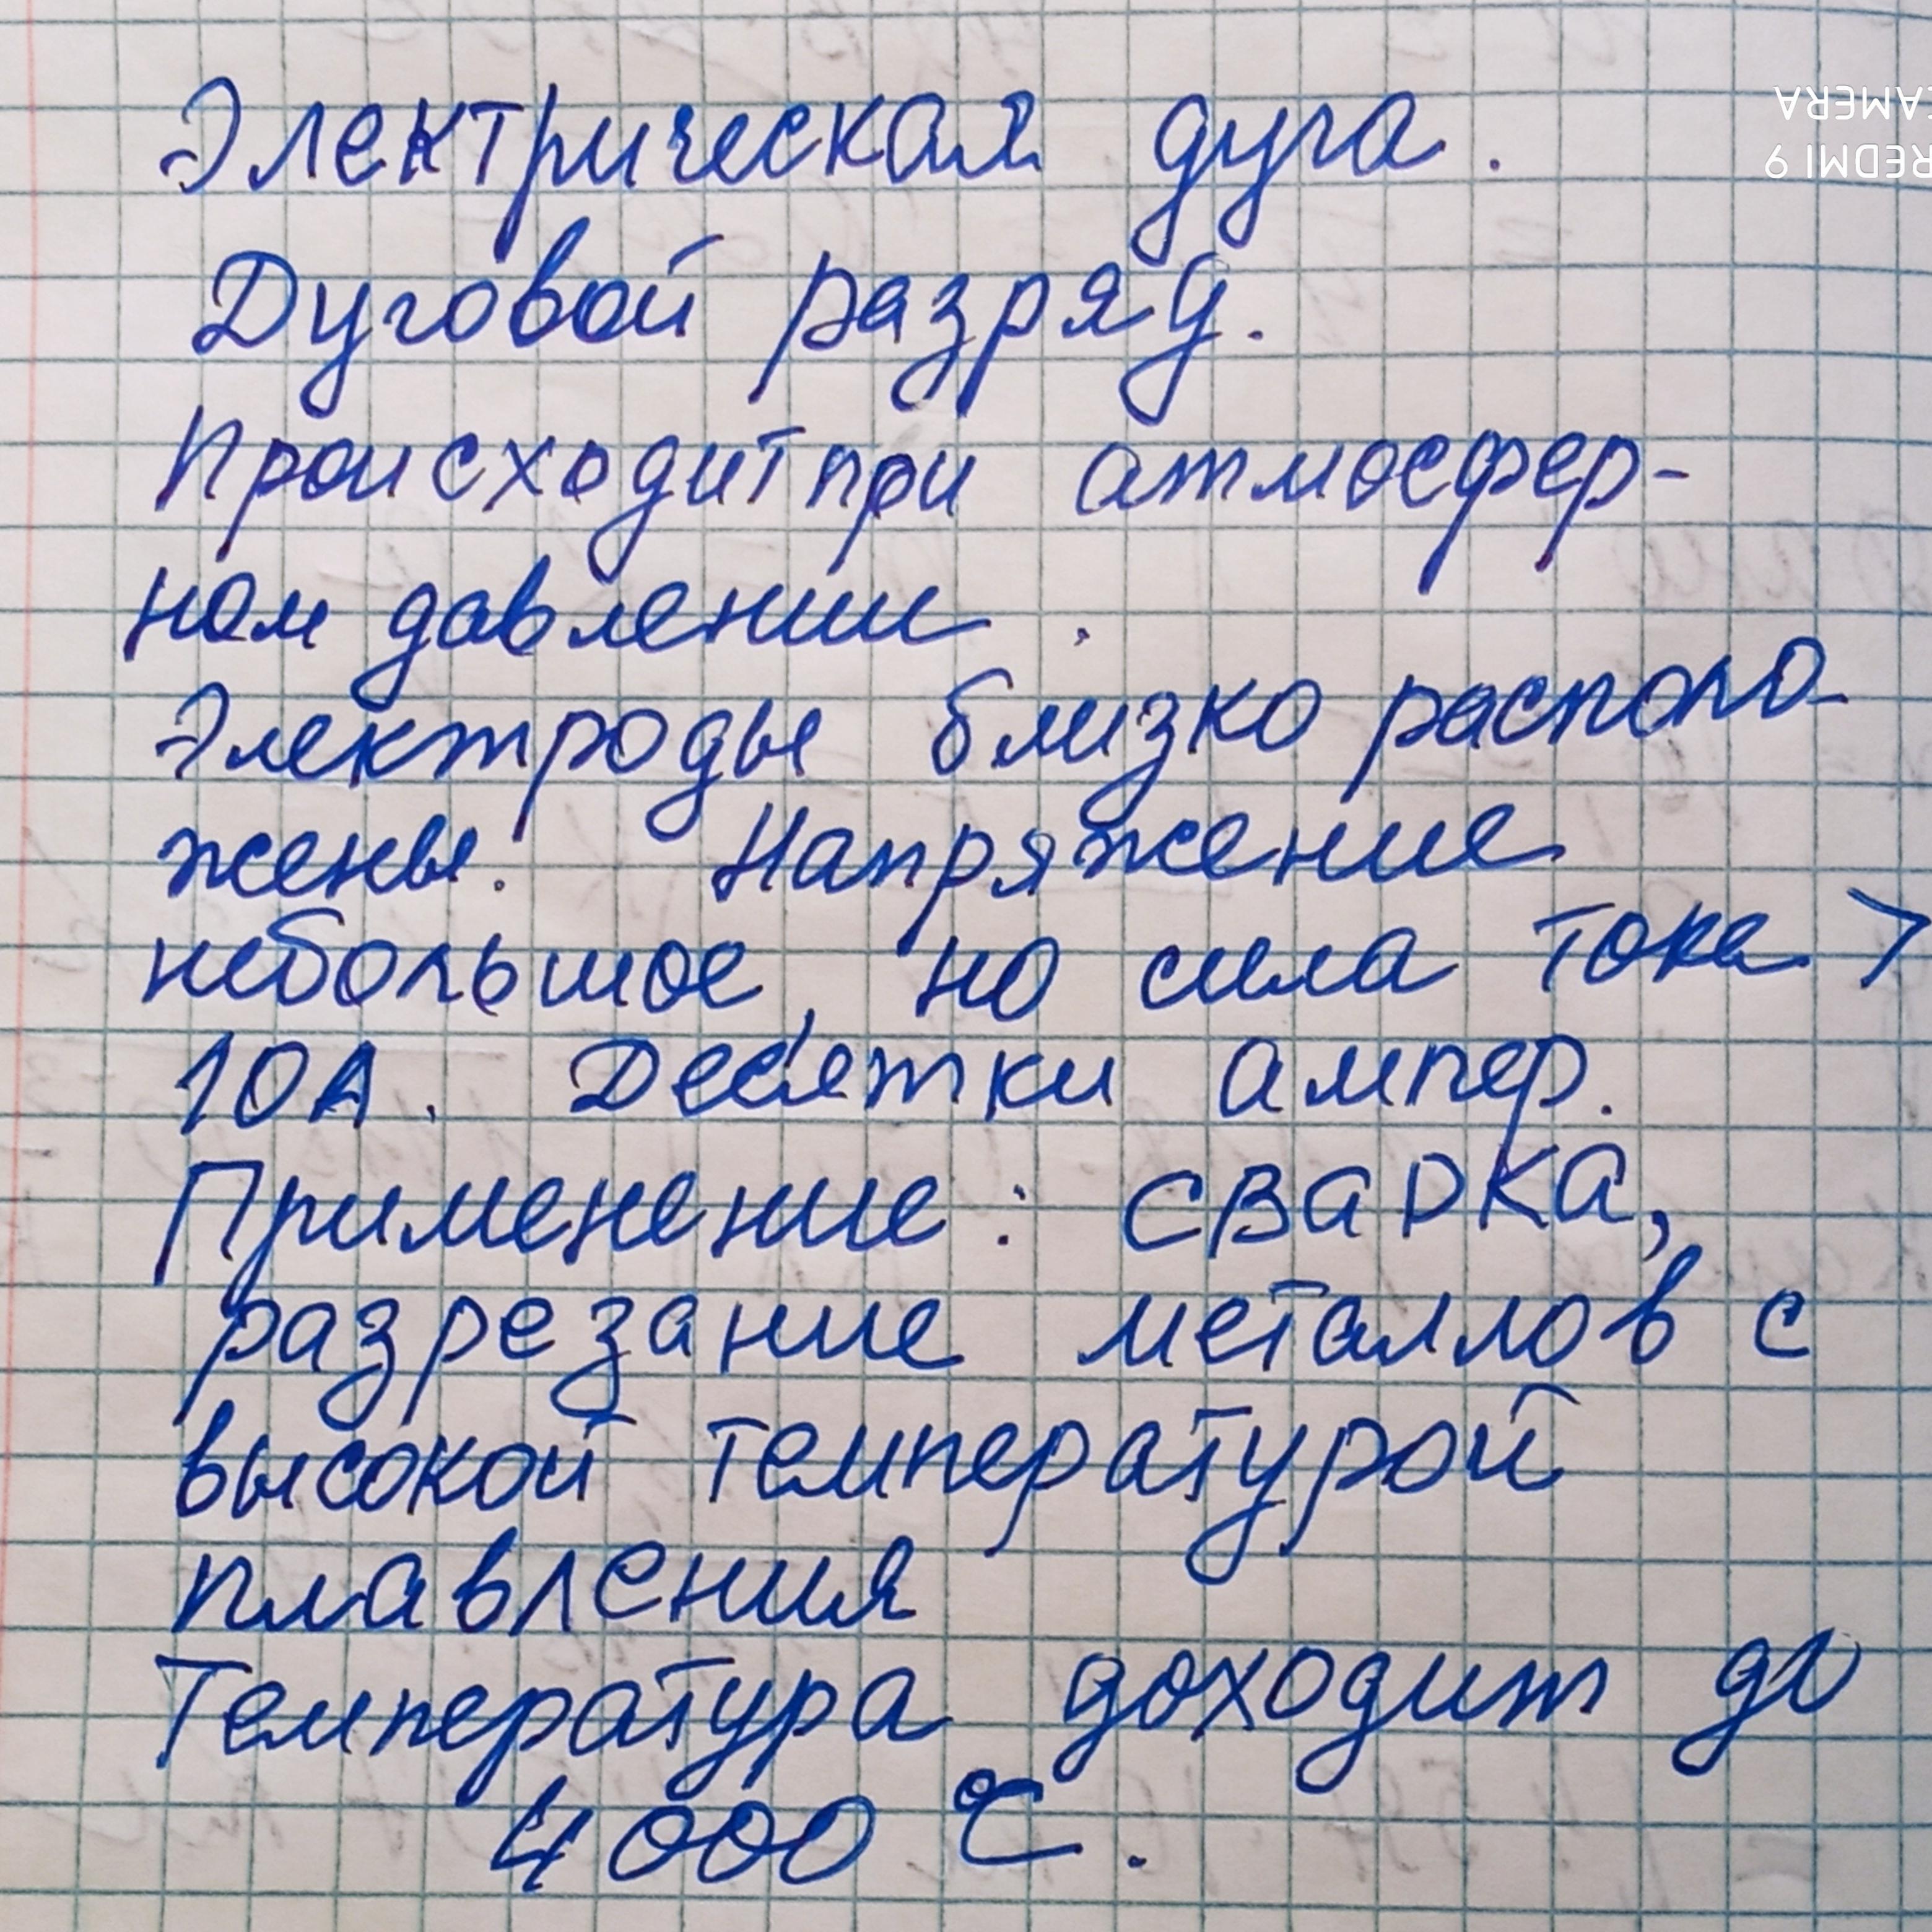 Электрическая дуга.
Дуговой разряд.
Происходит при атмосфер-
ном давлении.
Электроды близко располо-
жены. Напряжение
небольшое, но сила тока >
10А. Десятки ампер.
Применение: сварка,
разрезание металлов с
высокой температурой
плавления
Температура доходит до
4000 °С.
REDMI 9
CAMERA